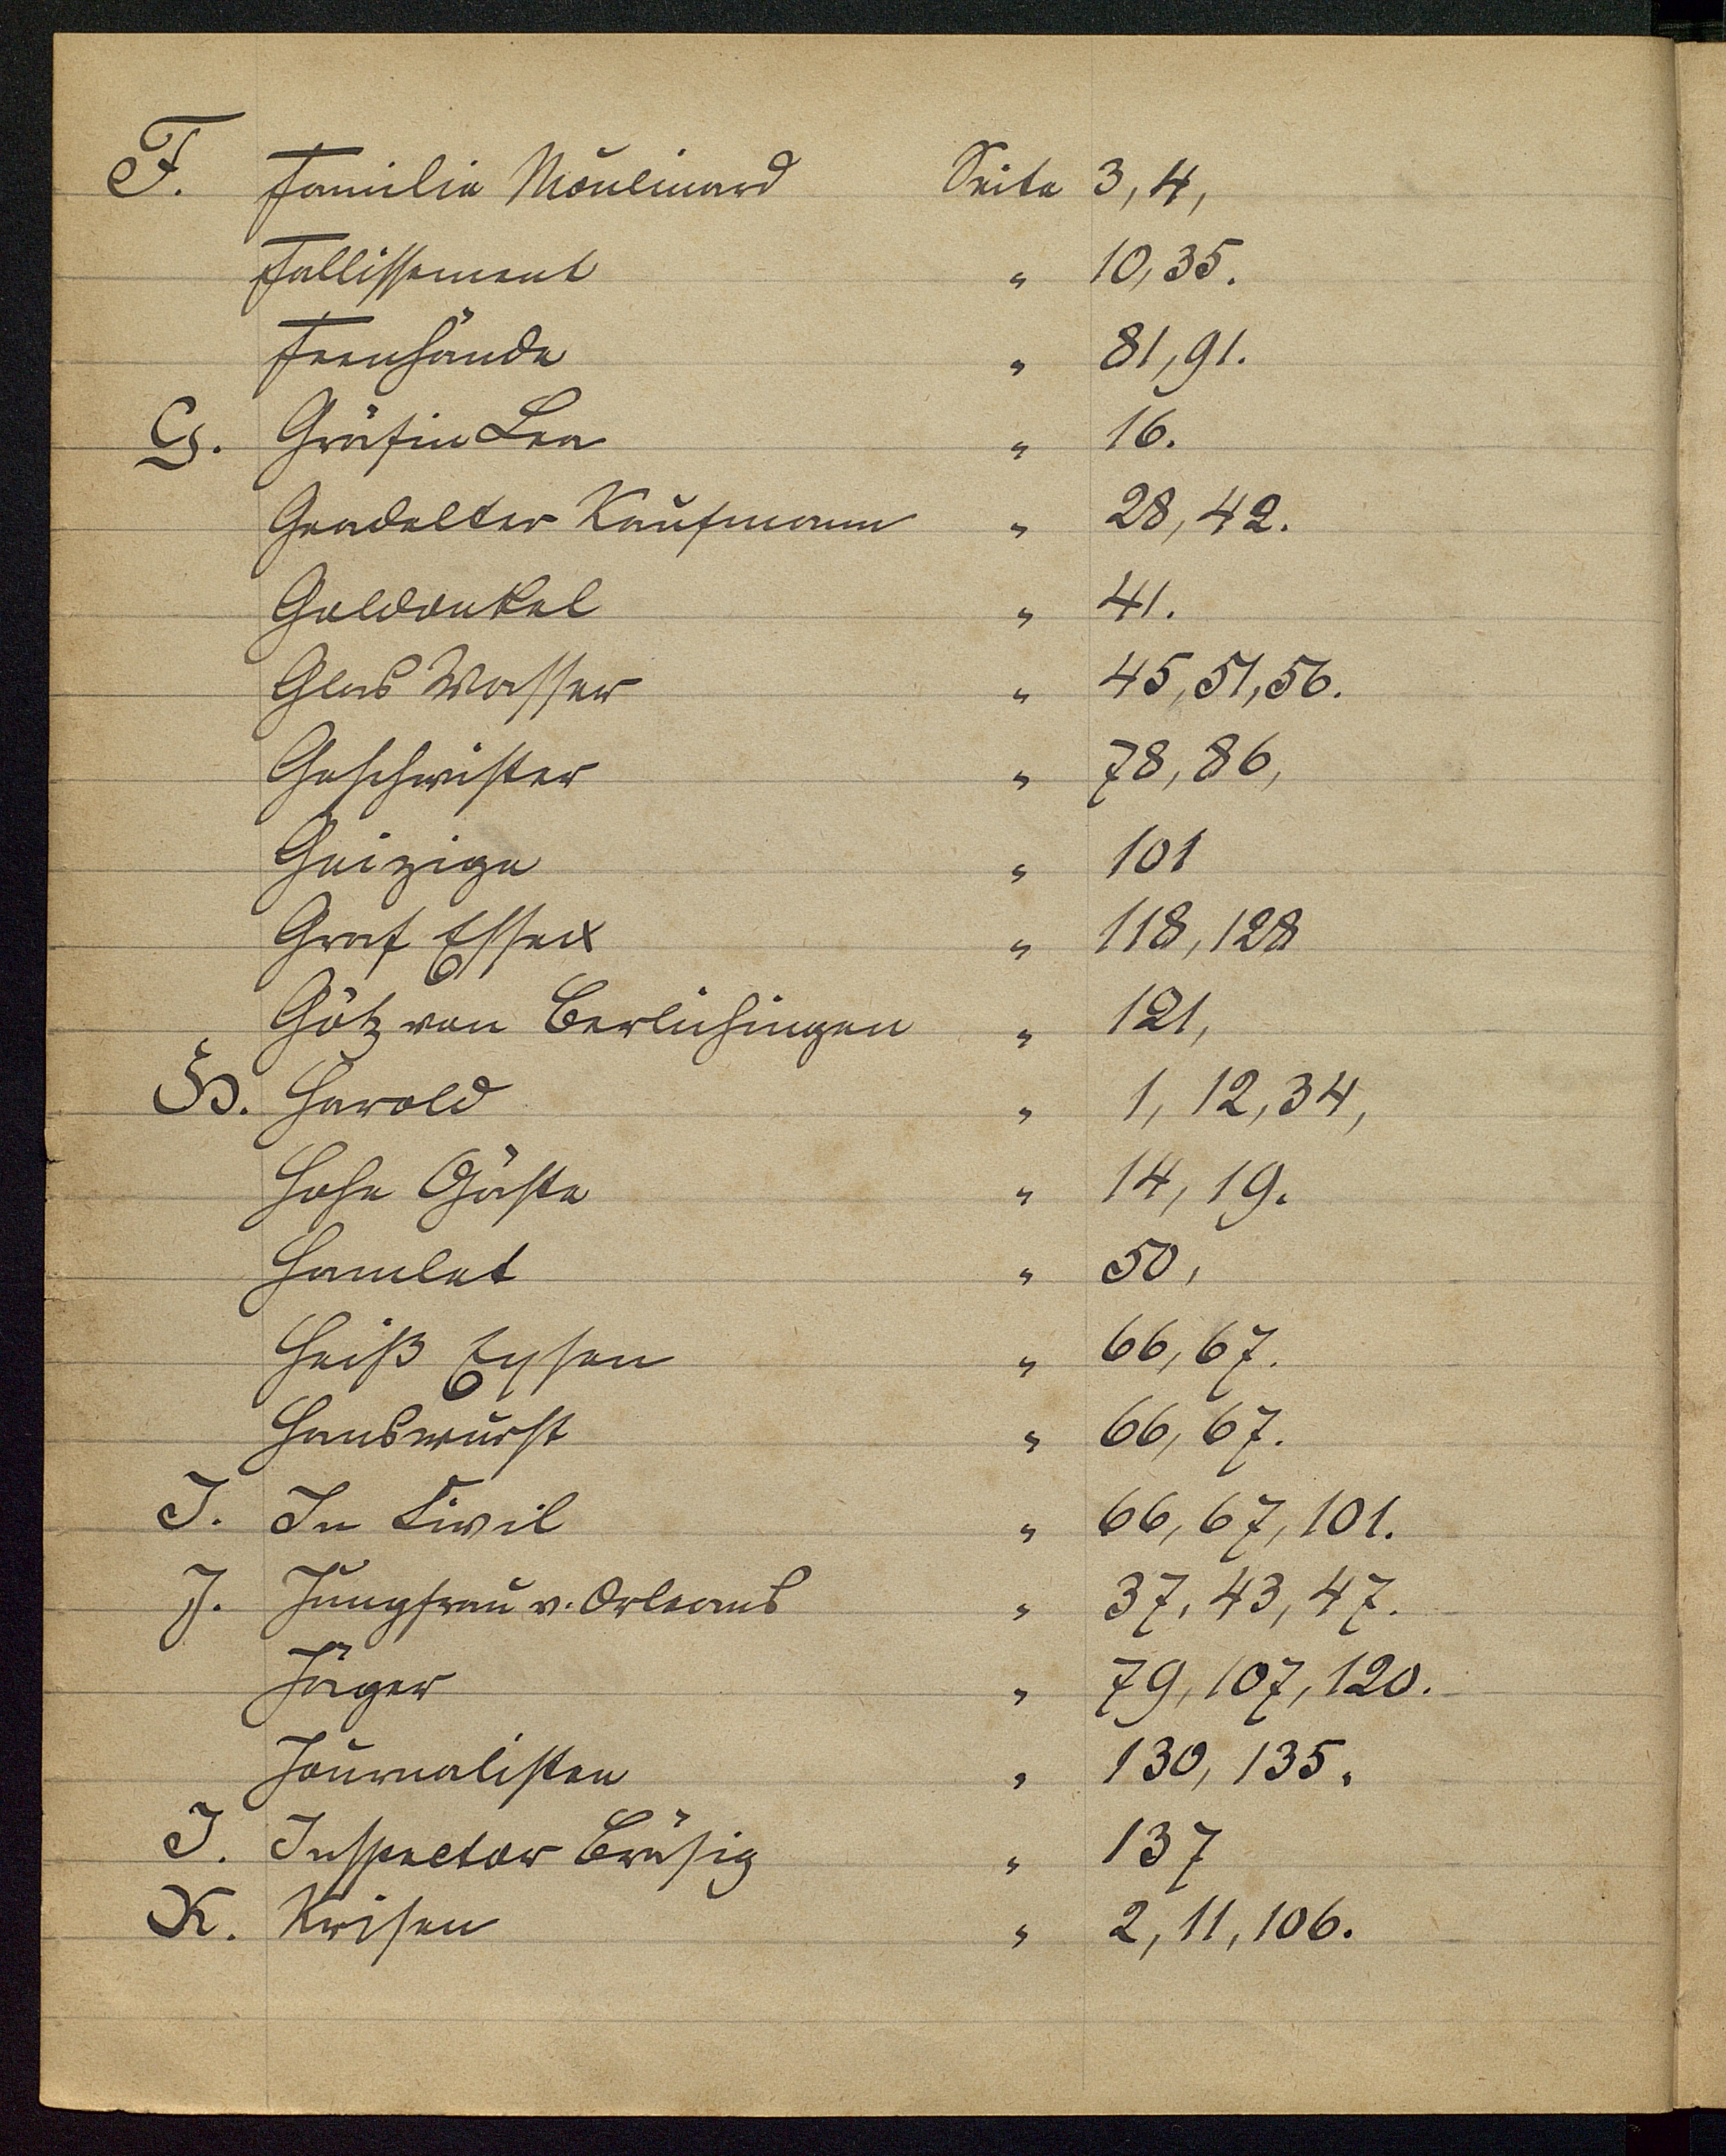 F. Familie Moulinard Seite 3, 4,
Fallissement " 10, 35.
Feenhände " 81, 91.
G. Gräfin Lea " 16.
Geadelter Kaufmann " 28, 42.
Goldonkel " 41.
Glas Wasser " 45, 51, 56.
Geschwister " 78, 86,
Geizige " 101
Graf Essex " 118, 128
Götz von Berlichingen " 121,
H. Harold " 1, 12, 34,
Hohe Gäste " 14, 19.
Hamlet " 50,
Heiß Eysen " 66, 67.
Hanswurst " 66, 67.
I. In Civil " 66, 67, 101.
J. Jungfrau v. Orleans " 37, 43, 47.
Jäger " 79, 107, 120.
Journalisten " 130, 135.
I. Inspector Bräsig " 137
K. Krisen " 2, 11, 106.